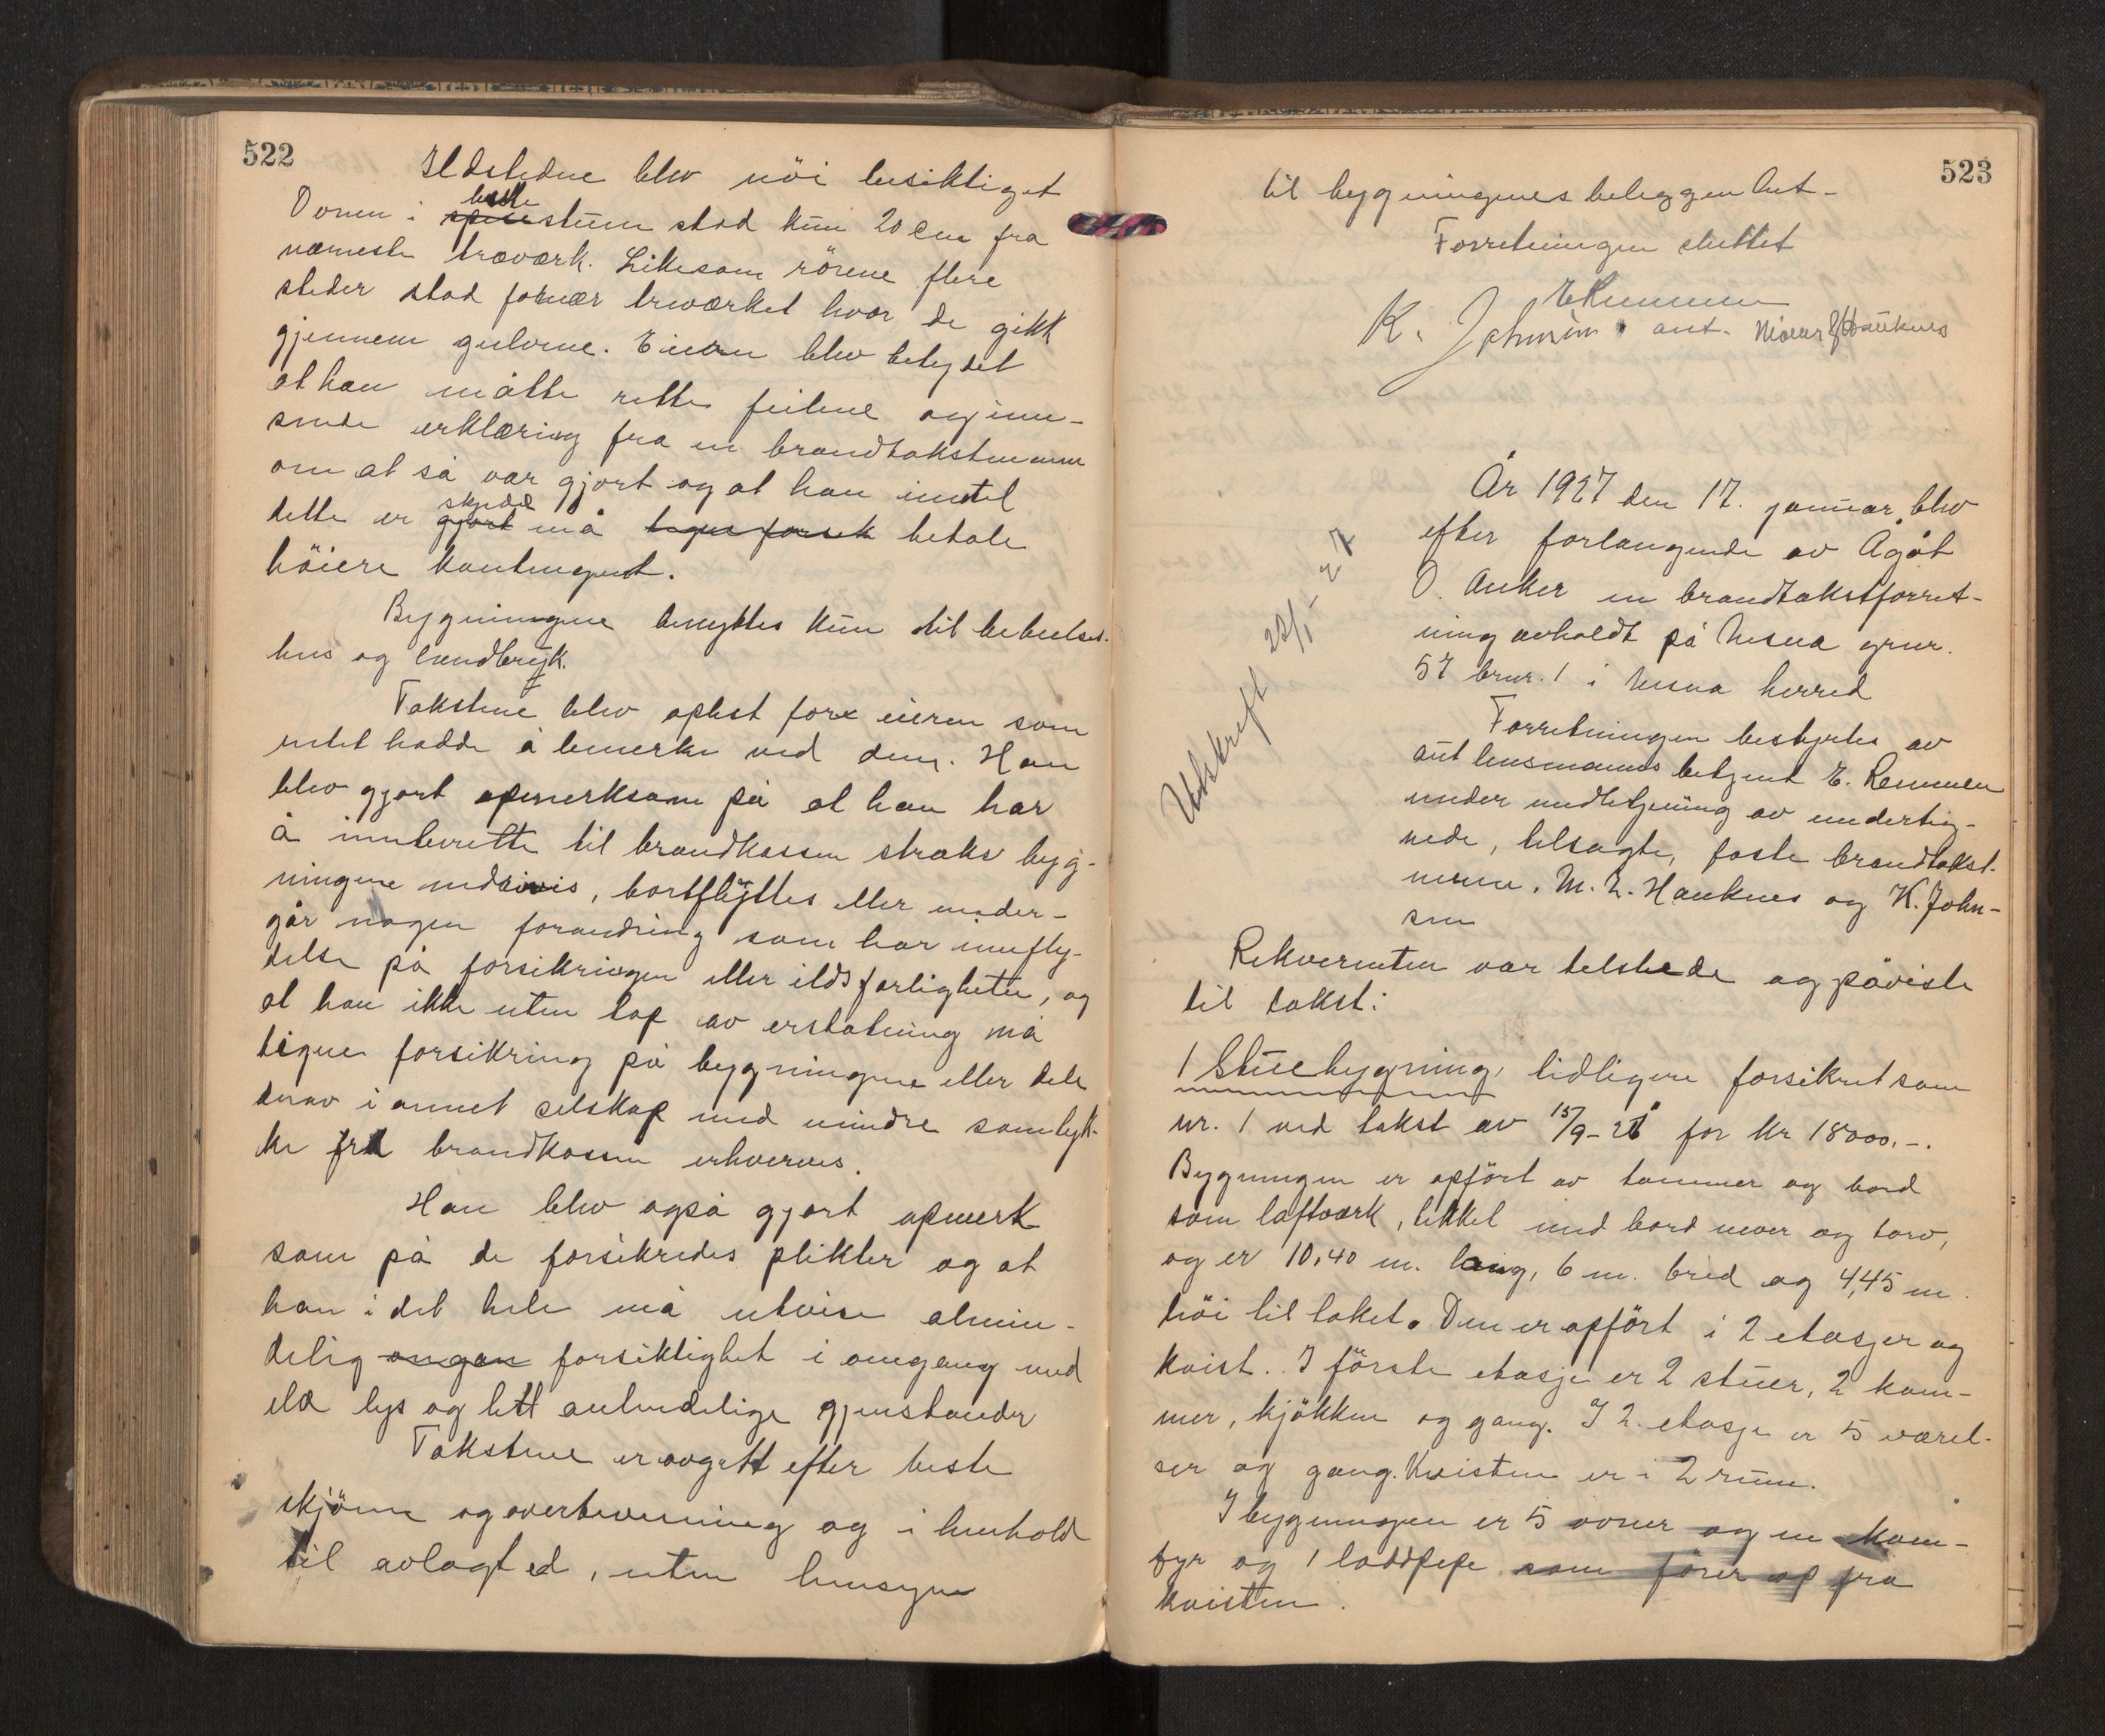 522
Ildstedene blev nöi besiktiget
Ovnen i beste stuen stod kun 20 cm fra
nærmeste træværk. Likesom rörene flere
steder stod for nær treværket hvor de gikk
gjennem gulvene. Eieren blev betydet
at han måtte rette feilene og inn-
sende erklæring fra en brandtakstmann
om at så var gjort og at han inntil
dette er skjedd må betale
höiere kontingent.
Bygningene benyttes kun til bebuelses-
hus og landbruk.
Takstene blev oplest for eieren som
intet hadde å bemerke ved dem. Han
blev gjort opmerksom på at han har
å innberette til brandkassen straks byg-
ningene nedrives, bortflyttes eller under-
går nogen forandring som har innfly-
telse på forsikringen eller ildsfarligheten, og
at han ikke uten tap av erstatning må
tegne forsikring på bygningene eller dele
derav i annet selskap med mindre samtyk-
ke fra brandkassen erhverves.
Han blev også gjort opmerk
som på de forsikredes plikter og at
han i det hele må utvise almin-
delig omgan forsiktighet i omgang med
ild lys og lett antendelige gjenstander
Takstene er avgitt efter beste
skjönn og overbevisning og i henhold
til avlagt ed, uten hensyn
523
til bygningenes beliggenhet-
Forretningen sluttet
ERemmen
K. Johnsen ant. Hauknes
Utskrift 22/1-27
År 1927 den 17. januar blev
efter forlangende av Ågöt
O. Anker en brandtakstforret-
ning avholdt på Nesna gnr.
57 brnr. 1 i Nesna herred
Forretningen bestyrtes av
aut lensmannsbetjent E. Remmen
under medbetjening av underteg-
nede, tilsagte, faste brandtakst-
menn, M. L. Hauknes og K. John-
sen
Rekvirenten var tilstede og påviste
til takst:
1 Stuebygning, tidligere forsikret som
nr. 1 ved takst av 15/9-21 for kr 18000.-.
Bygningen er opfört av tømmer og bord
som laftværk, tekket med bord never og torv,
og er 10,40 m. lang, 6 m. bred og 4,45 m.
höi til taket. Den er opfört i 2 etasjer og
kvist. I förste etasje er 2 stuer, 2 kam-
mer, kjökken og gang. I 2. etasje er 5 værel-
ser og gang. Kvisten er i 2 rum.
I bygningen er 5 ovner og en kom-
fyr og 1 loddpipe som förer op fra
kvisten.